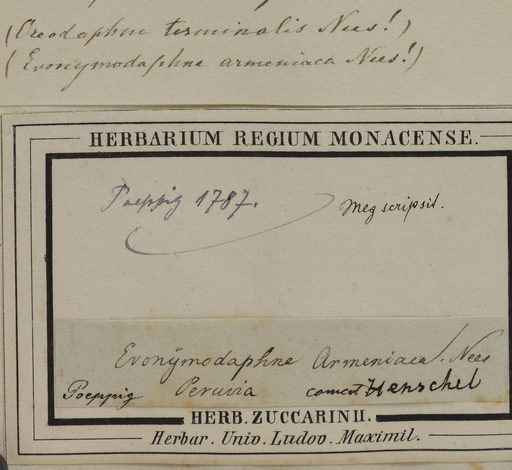 (Oreodaphne terminalis Nees!)
(Evonymodaphne armeniaca Nees!)
HERBARIUM REGIUM MONACENSE.
Poeppig 1787. Meg scripsit.
Evonymodaphne Armeniaca! Nees
Poeppig Peruvia comct Henschel
HERB. ZUCCARINII.
Herbar. Univ. Ludov. Maximil.